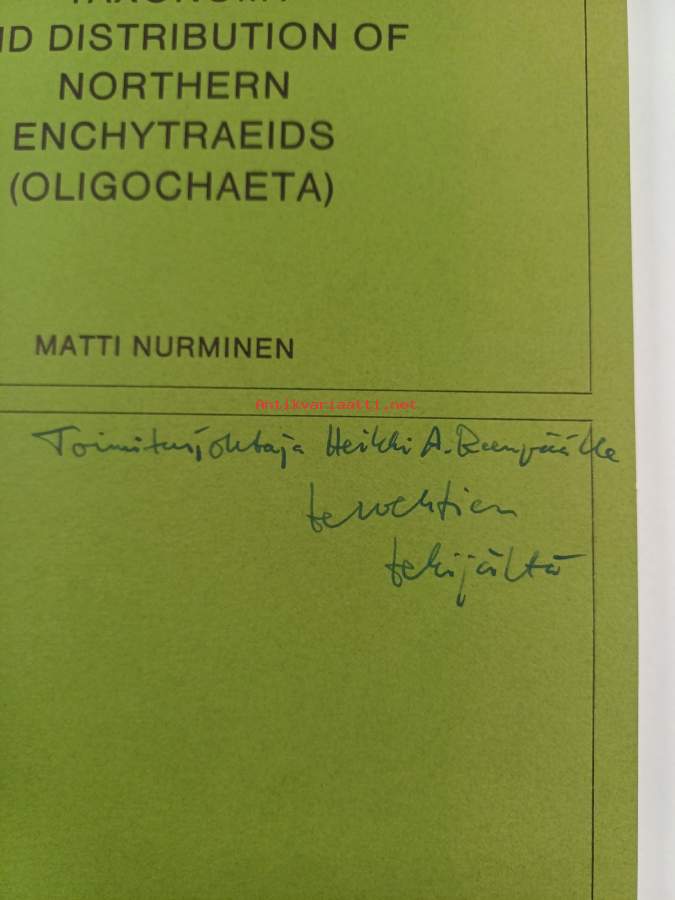 TAXONOMY
ND DISTRIBUTION OF
NORTHERN
ENCHYTRAEIDS
(OLIGOCHAETA)
MATTI NURMINEN
Antikvariaatti.net
Toimitusjohtaja Heikki A. Reenpäälle
tervehtien
tekijältä